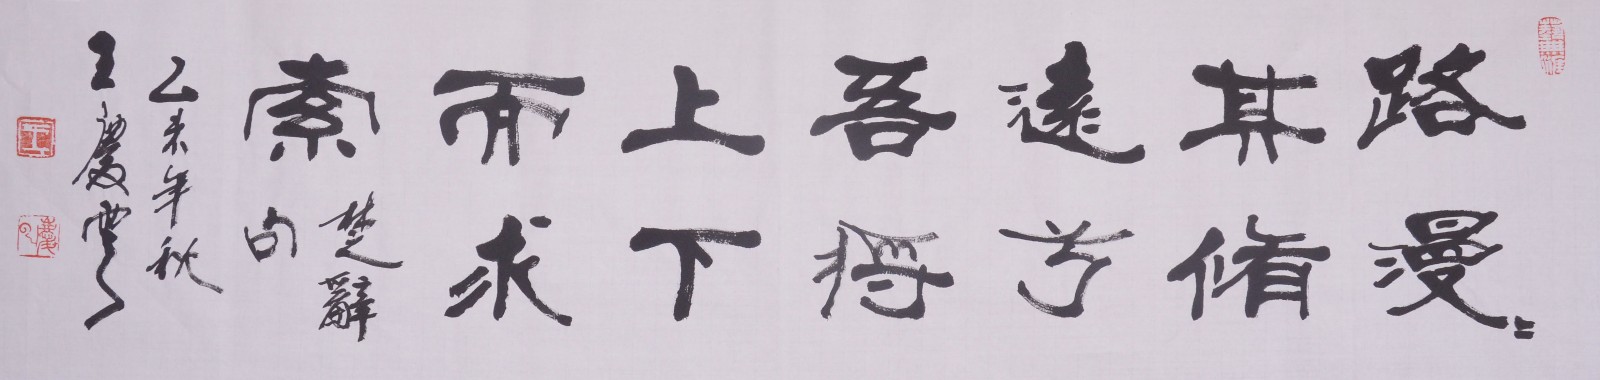 路漫〻
其脩
遠兮
吾將
上下
而求
索
楚辭
句
乙未年秋
王慶雲